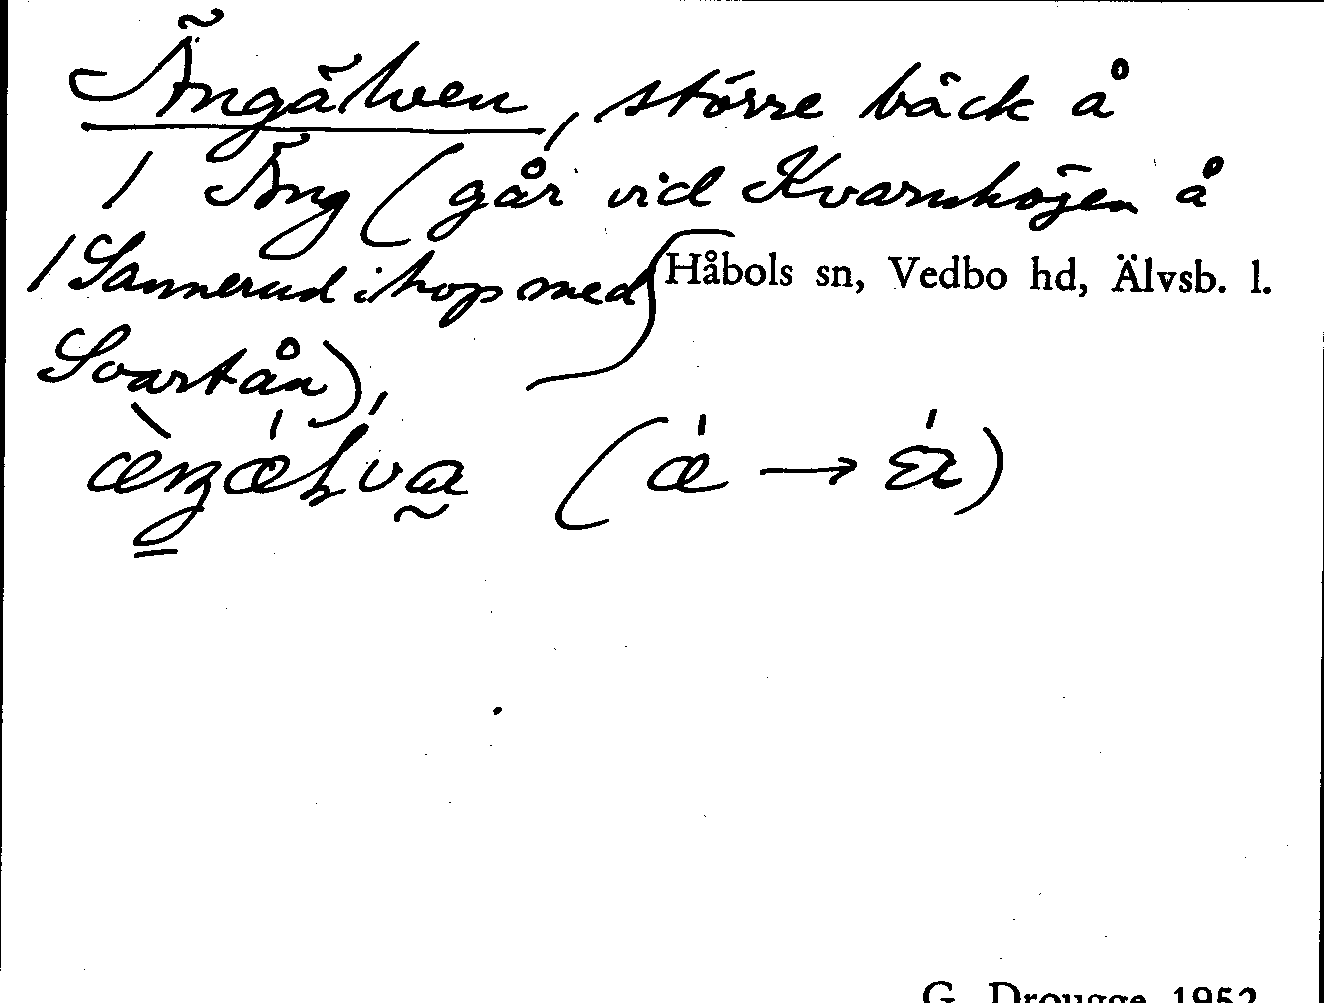 Ängälven, större bäck å
/ Äng (går vid Kvarnhöjen å
/ Sannerud ihop med
Håbols sn, Vedbo hd, Älvsb. l.
Svartån),
(ǽ → )
G. Drougge 1952